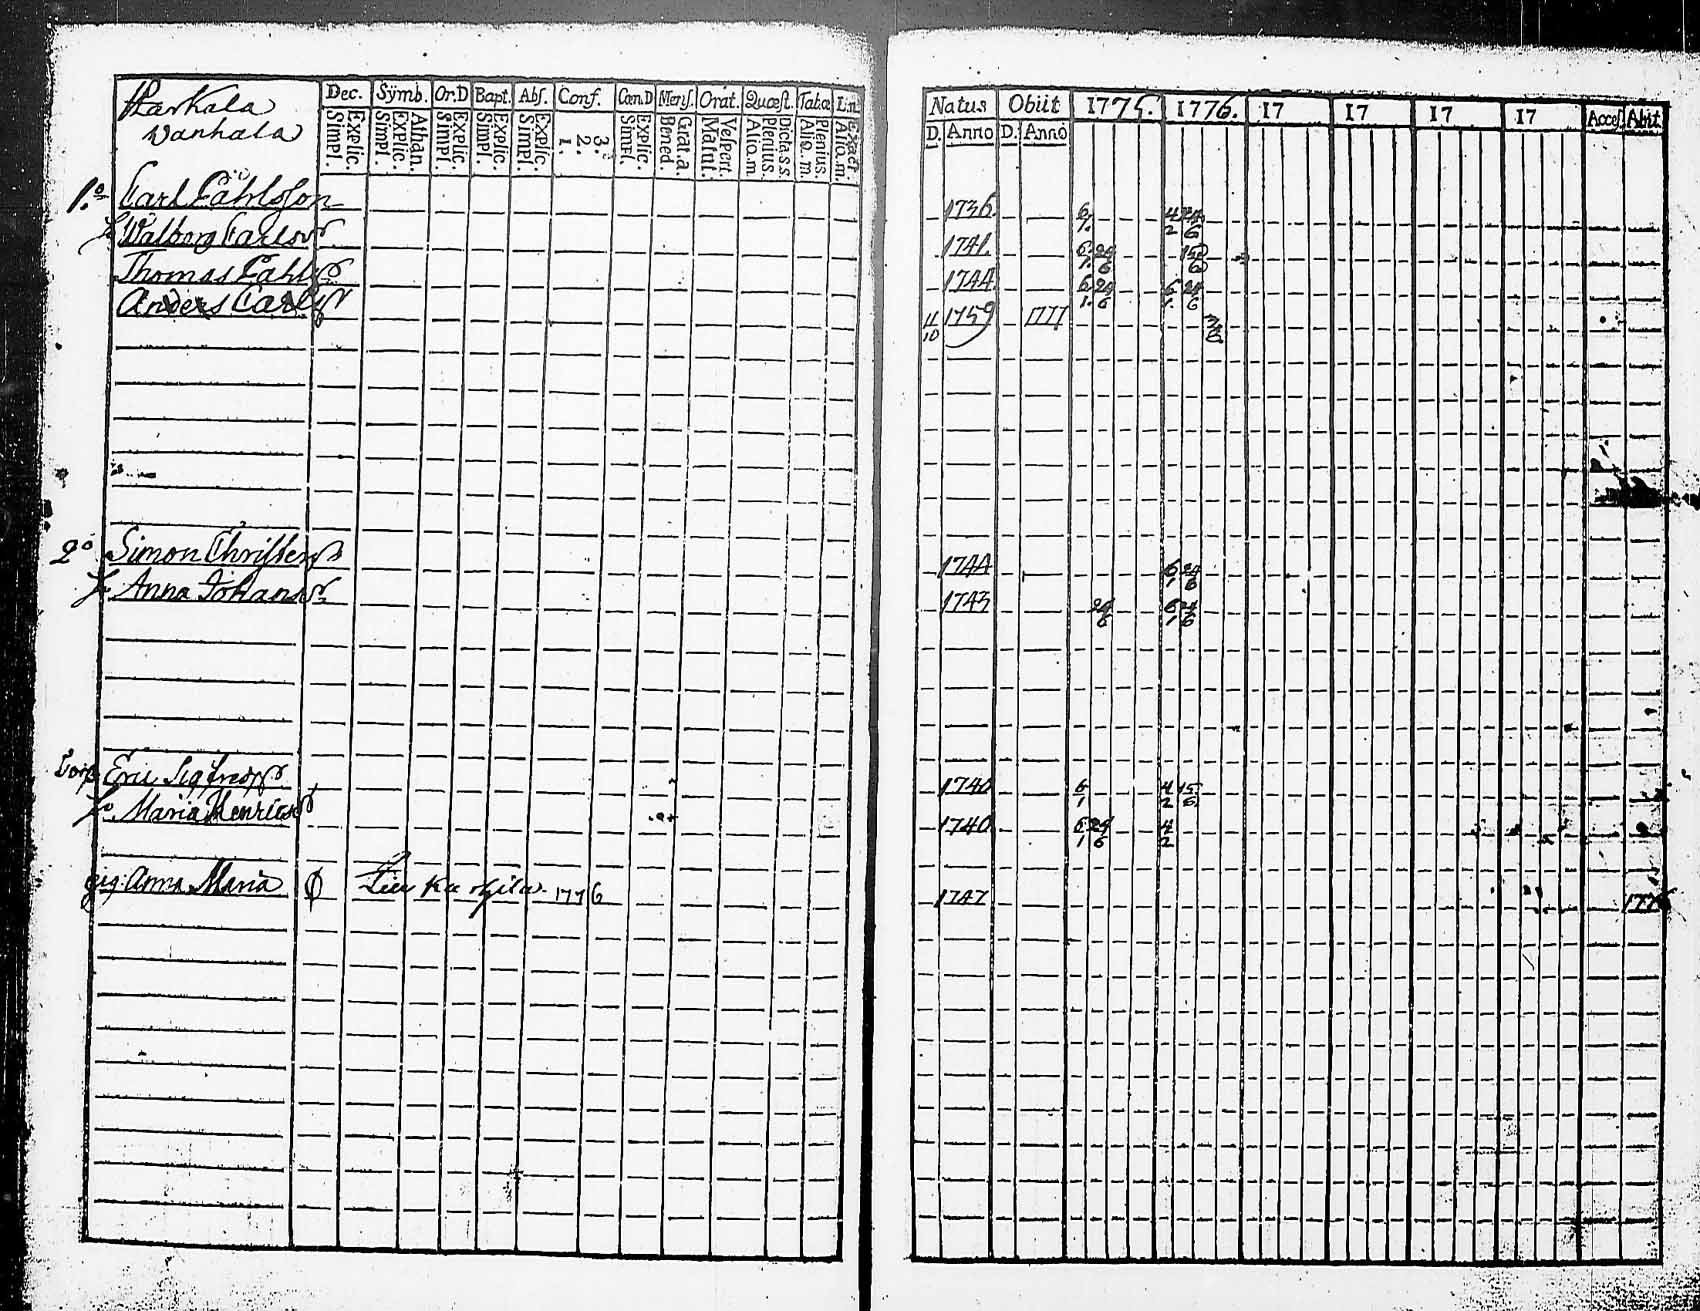 Wanhala
Dec. Symb. Or.D Bapt. Abs. Conf. Cœn.D Mens. Orat. Quæst. Taba Lin
Explic. Simpl. Athan. Explic. Simpl. Explic. Simpl. Explic. Simpl. Explic. Simpl. 3. 2. 1. Explic. Simpl. Grat.a. Bened. Vespert. Matut. Dicta.s.s. Plenius. Aliq.m. Plenius. Aliq.m. Aliq.m.
Natus Obiit 1775. 1776. 17 17 17 17 Access. Abit
D. Anno D. Anno
1.o Carl Påhlsson 1736. 6/1. 4/2 24/6
Walborg Carlsdr 1741. 6/1. 24/6 15/6
Thomas Påhls 1744. 6/1. 24/6 6/1. 24/6
Anders Carls 11/10 1759 1777
2o Simon Christers 1744 6/1 24/6
Anna Johansdr 1743 24/6 6/1 24/6
Eric Sigfreds 1740 6/1 4/2 15/6
Maria Henricsdr 1740 6/1 24/6 4/2
Anna Maria 1776 1747 1776